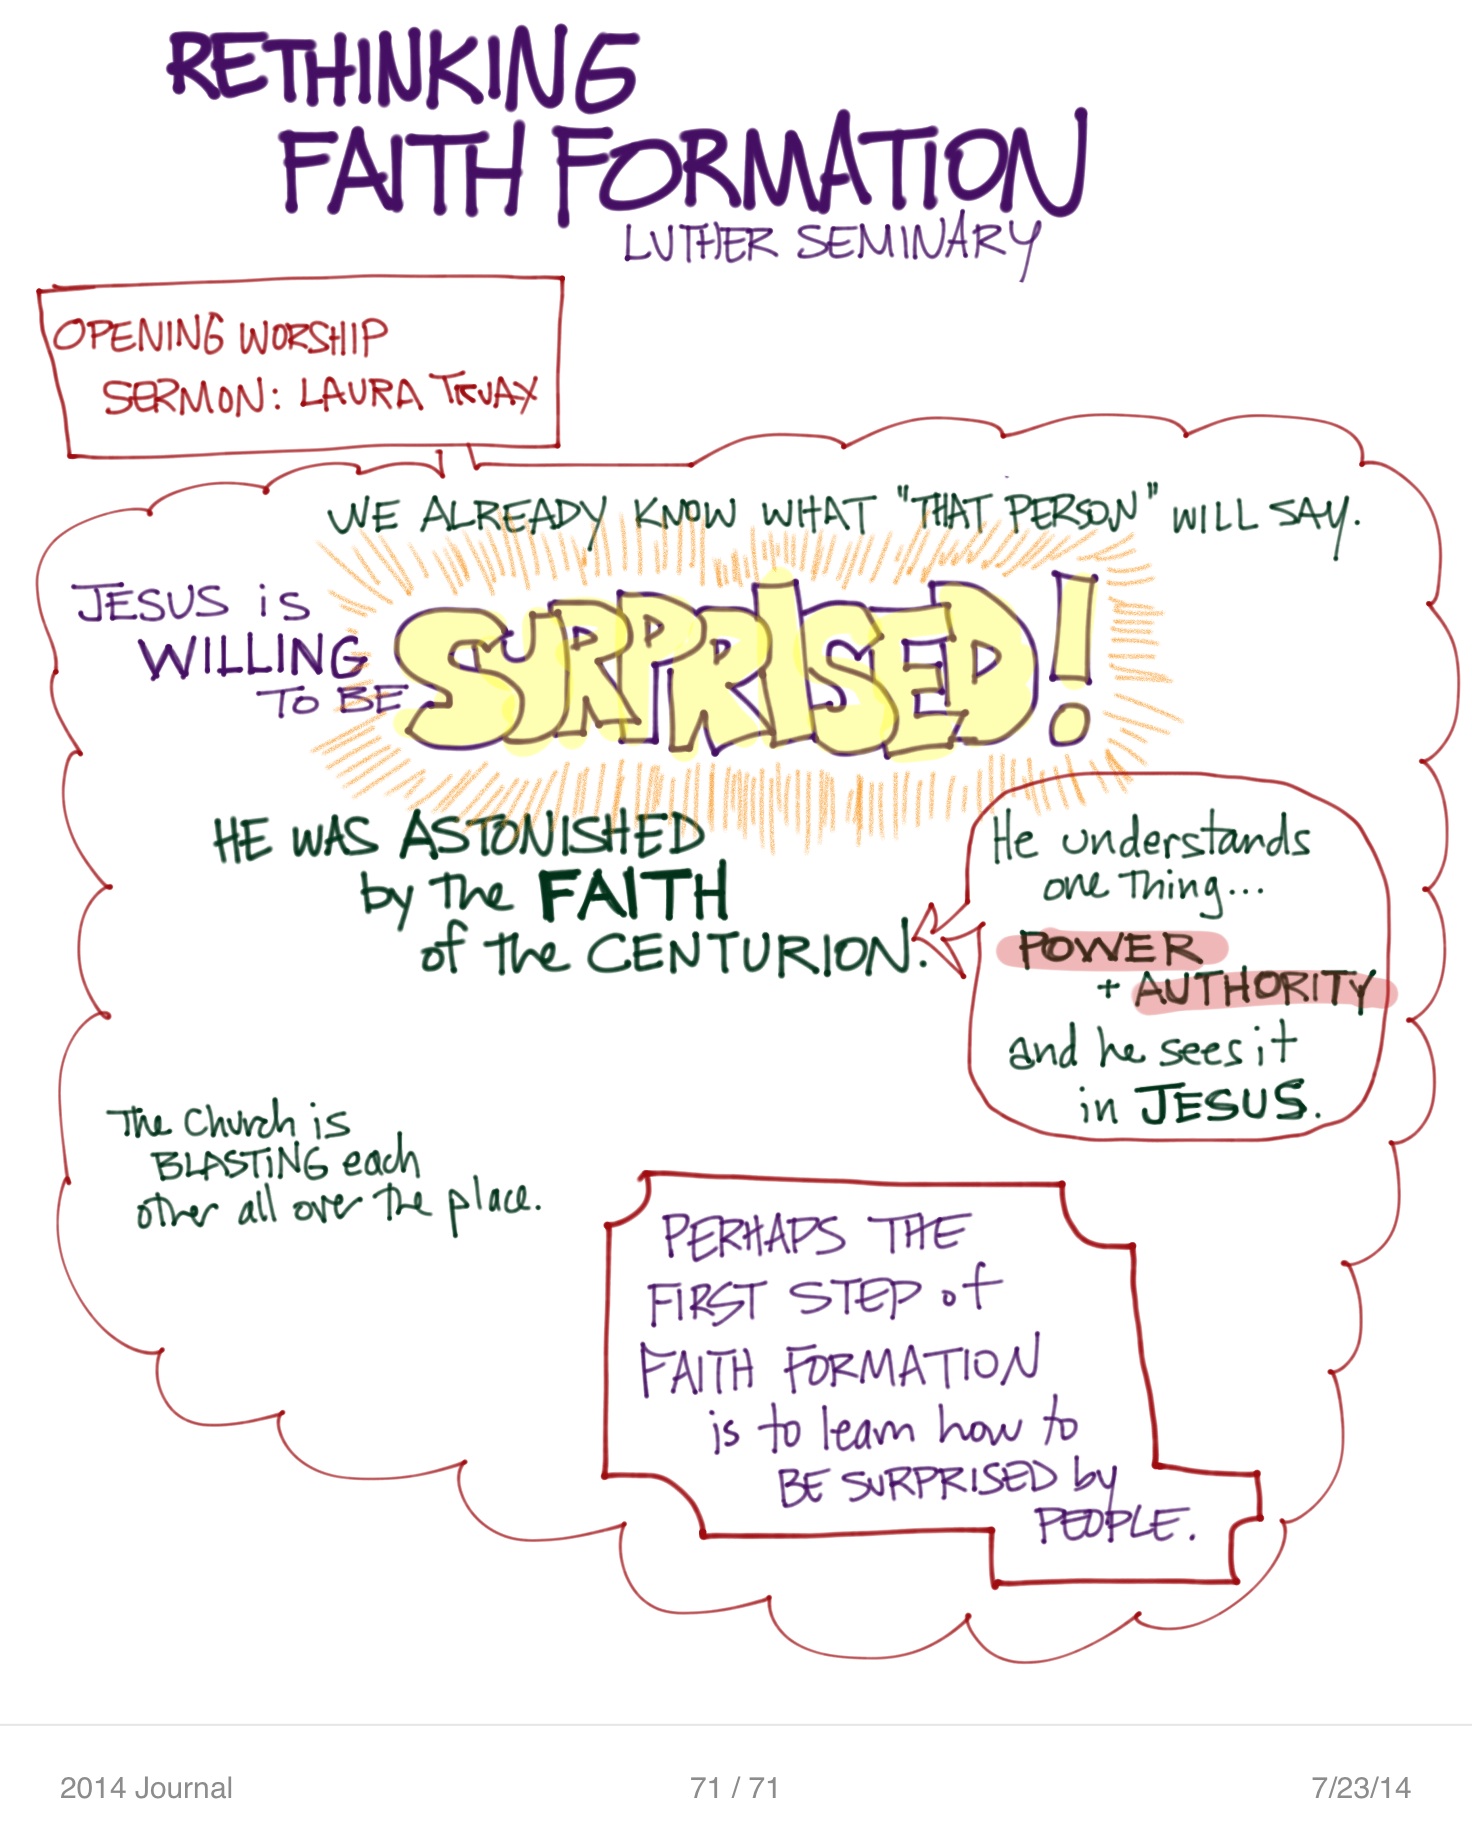 RETHINKING
FAITH FORMATION
LUTHER SEMINARY
OPENING WORSHIP
SERMON: LAURA TRUAX
WE ALREADY KNOW WHAT "THAT PERSON" WILL SAY.
JESUS iS
WILLING
TO BE
SURPRISED!
HE WAS ASTONISHED
by the FAITH
of the CENTURION.
He understands
one thing...
POWER
+ AUTHORITY
and he sees it
in JESUS.
The Church is
BLASTiNG each
other all over the place.
PERHAPS THE
FIRST STEP of
FAITH FORMATION
is to learn how to
BE SURPRISED by
PEOPLE.
2014 Journal
71 / 71
7/23/14